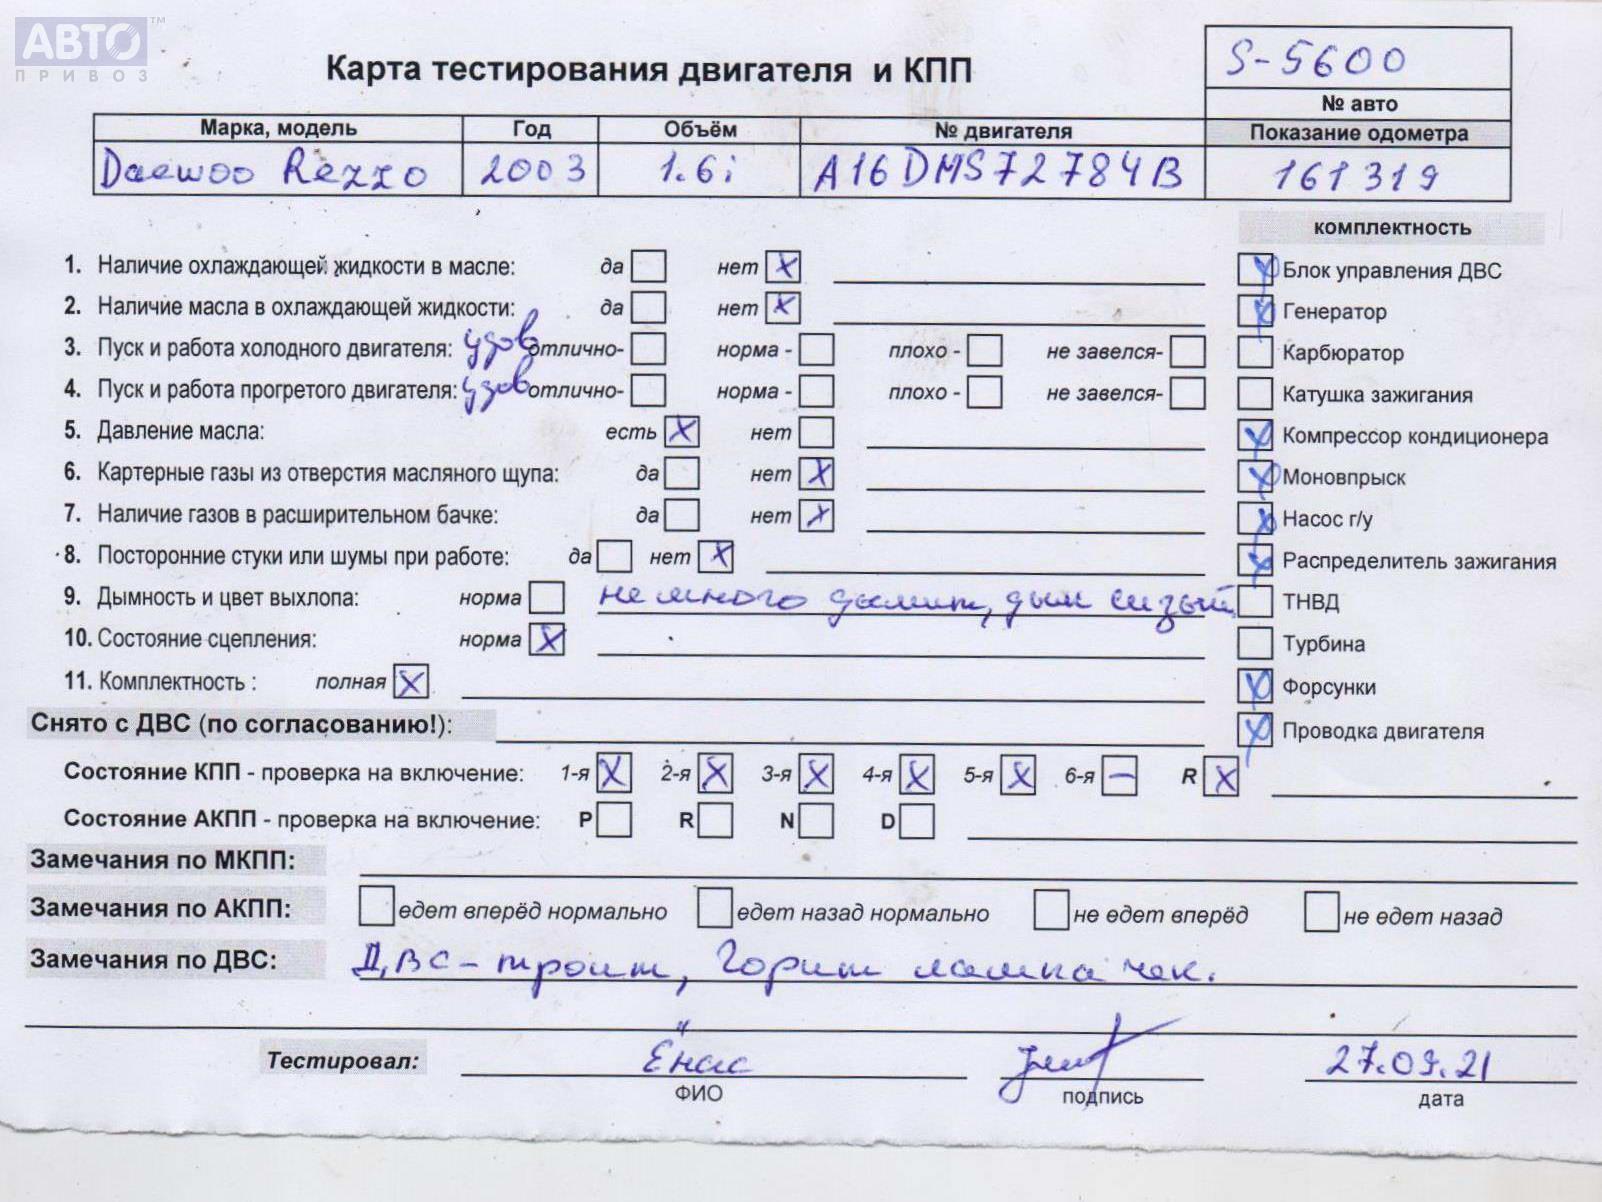 АВТО™
ПРИВОЗ
Карта тестирования двигателя и КПП
S-5600
№ авто
Марка, модель Год Объём № двигателя Показание одометра
Daewoo Rezzo 2003 1.6i A16DMS72784B 161319
комплектность
1. Наличие охлаждающей жидкости в масле: да нет x
Блок управления ДВС
2. Наличие масла в охлаждающей жидкости: да нет x
Генератор
3. Пуск и работа холодного двигателя: удов отлично- норма - плохо - не завелся-
Карбюратор
4. Пуск и работа прогретого двигателя: удов отлично- норма - плохо - не завелся-
Катушка зажигания
5. Давление масла: есть x нет
Компрессор кондиционера
6. Картерные газы из отверстия масляного щупа: да нет x
Моновпрыск
7. Наличие газов в расширительном бачке: да нет x
Насос г/у
8. Посторонние стуки или шумы при работе: да нет x
Распределитель зажигания
9. Дымность и цвет выхлопа: норма немного дымит, дым сизый
ТНВД
10. Состояние сцепления: норма x
Турбина
11. Комплектность : полная x
Форсунки
Снято с ДВС (по согласованию!):
Проводка двигателя
Состояние КПП - проверка на включение: 1-я x 2-я x 3-я x 4-я x 5-я x 6-я – R x
Состояние АКПП - проверка на включение: P R N D
Замечания по МКПП:
Замечания по АКПП: едет вперёд нормально едет назад нормально не едет вперёд не едет назад
Замечания по ДВС: ДВС - троит, Горит лампа чек.
Тестировал: 27.09.21
ФИО подпись дата